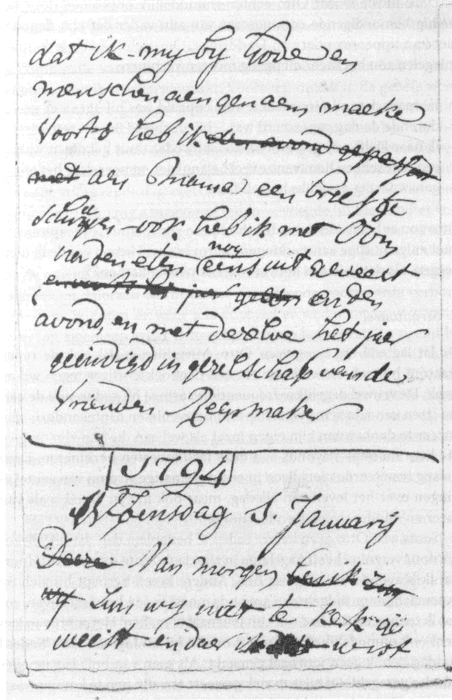 dat ik my by Gode en
menschen aengenaem maeke
Voorts heb ik den avond gepasseert
met aen Mama een briefje
schryven ook heb ik met Oom
na den eten nog eens uit geweest
en voorts het jaer en den
avond, en met dezelve het jaer
geeindigd in gezelschap van de
Vrienden
1794
Woensdag 1. January
Deeze Van morgen
wy zun wij naer te kerk ge
weest en daer ik wist